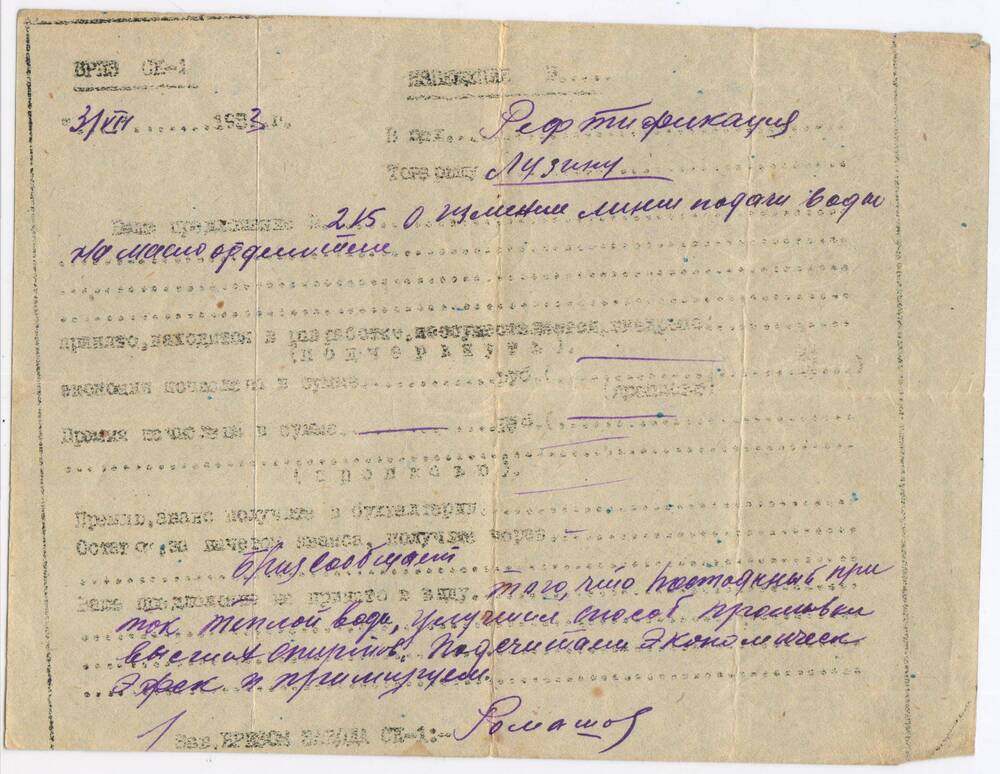 БРИЗ СК-1 В.....
3/VIII......1953 г. В цех...Ректификация
Товарищу Лузину
Ваше предложение № 215 О измении линии подачи воды
на маслоотделители
принято, находится в разработке, неосуществляется, внедрено.
(подчеркнуть).
экономия исчислено в сумме..........руб.(
(прописью)
Премия исчислена в сумме..........руб.(
(прописью).
Премию, аванс получите в бухгалтерии.
Остаток, за вычетом аванса, получите через.-
Бриз сообщает
Ваше предложение не принято в виду. того, что постоянный при
ток теплой воды, улучшил способ промывки
высших спиртов. Подсчитаем Экономическ
Эфек и примируем.
Зав. БРИЗОМ ЗАВОДА СК-1:- Ромашов